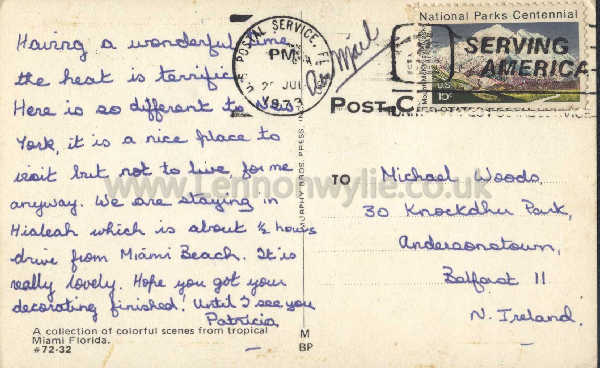 Having a wonderful time
the heat is terrific
Here is so different to New
York, it is a nice place to
visit but not to live, for me
anyway. We are staying in
Hialeah which is about ½ hours
drive from Miami Beach. It is
really lovely. Hope you got your
decorating finished! Until I see you
Patricia
A collection of colorful scenes from tropical
Miami Florida.
#72-32
U.S. POSTAL SERVICE, FL
PM
JUL
1973
Air Mail
National Parks Centennial
SERVING
AMERICA
U.S.
15c
POST C
MURPHY BROS. PRESS, IN
M
BP
TO
Michael Woods,
30 Knockdhu Park,
Andersonstown,
Belfast 11
N. Ireland.
www.Lennonwylie.co.uk